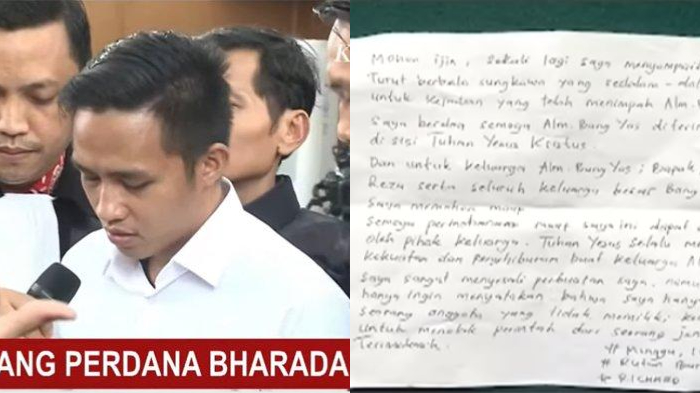 K
ANG PERDANA BHARADA
Mohon ijin, sekali lagi saya menyampaik
Turut berbela sungkawa yang sedalam-da
untuk kejadian yang telah menimpah Alm
Saya berdoa semoga Alm. Bang Yos diteri
di sisi Tuhan Yesus Kristus.
Dan untuk keluarga Alm. Bang Yos, Bapak
Reza serta seluruh keluarga besar Bang
Saya memohon maaf
Semoga permohonan maaf saya ini dapat di
oleh pihak keluarga. Tuhan Yesus selalu me
kekuatan dan penghiburan buat keluarga Al
Saya sangat menyesali perbuatan saya, namu
hanya ingin menyatakan bahwa saya hanya
seorang anggota yang tidak memiliki ke
untuk menolak perintah dari seorang jen
Terimakasih.
# Minggu,
# Rutan
# RICHARD